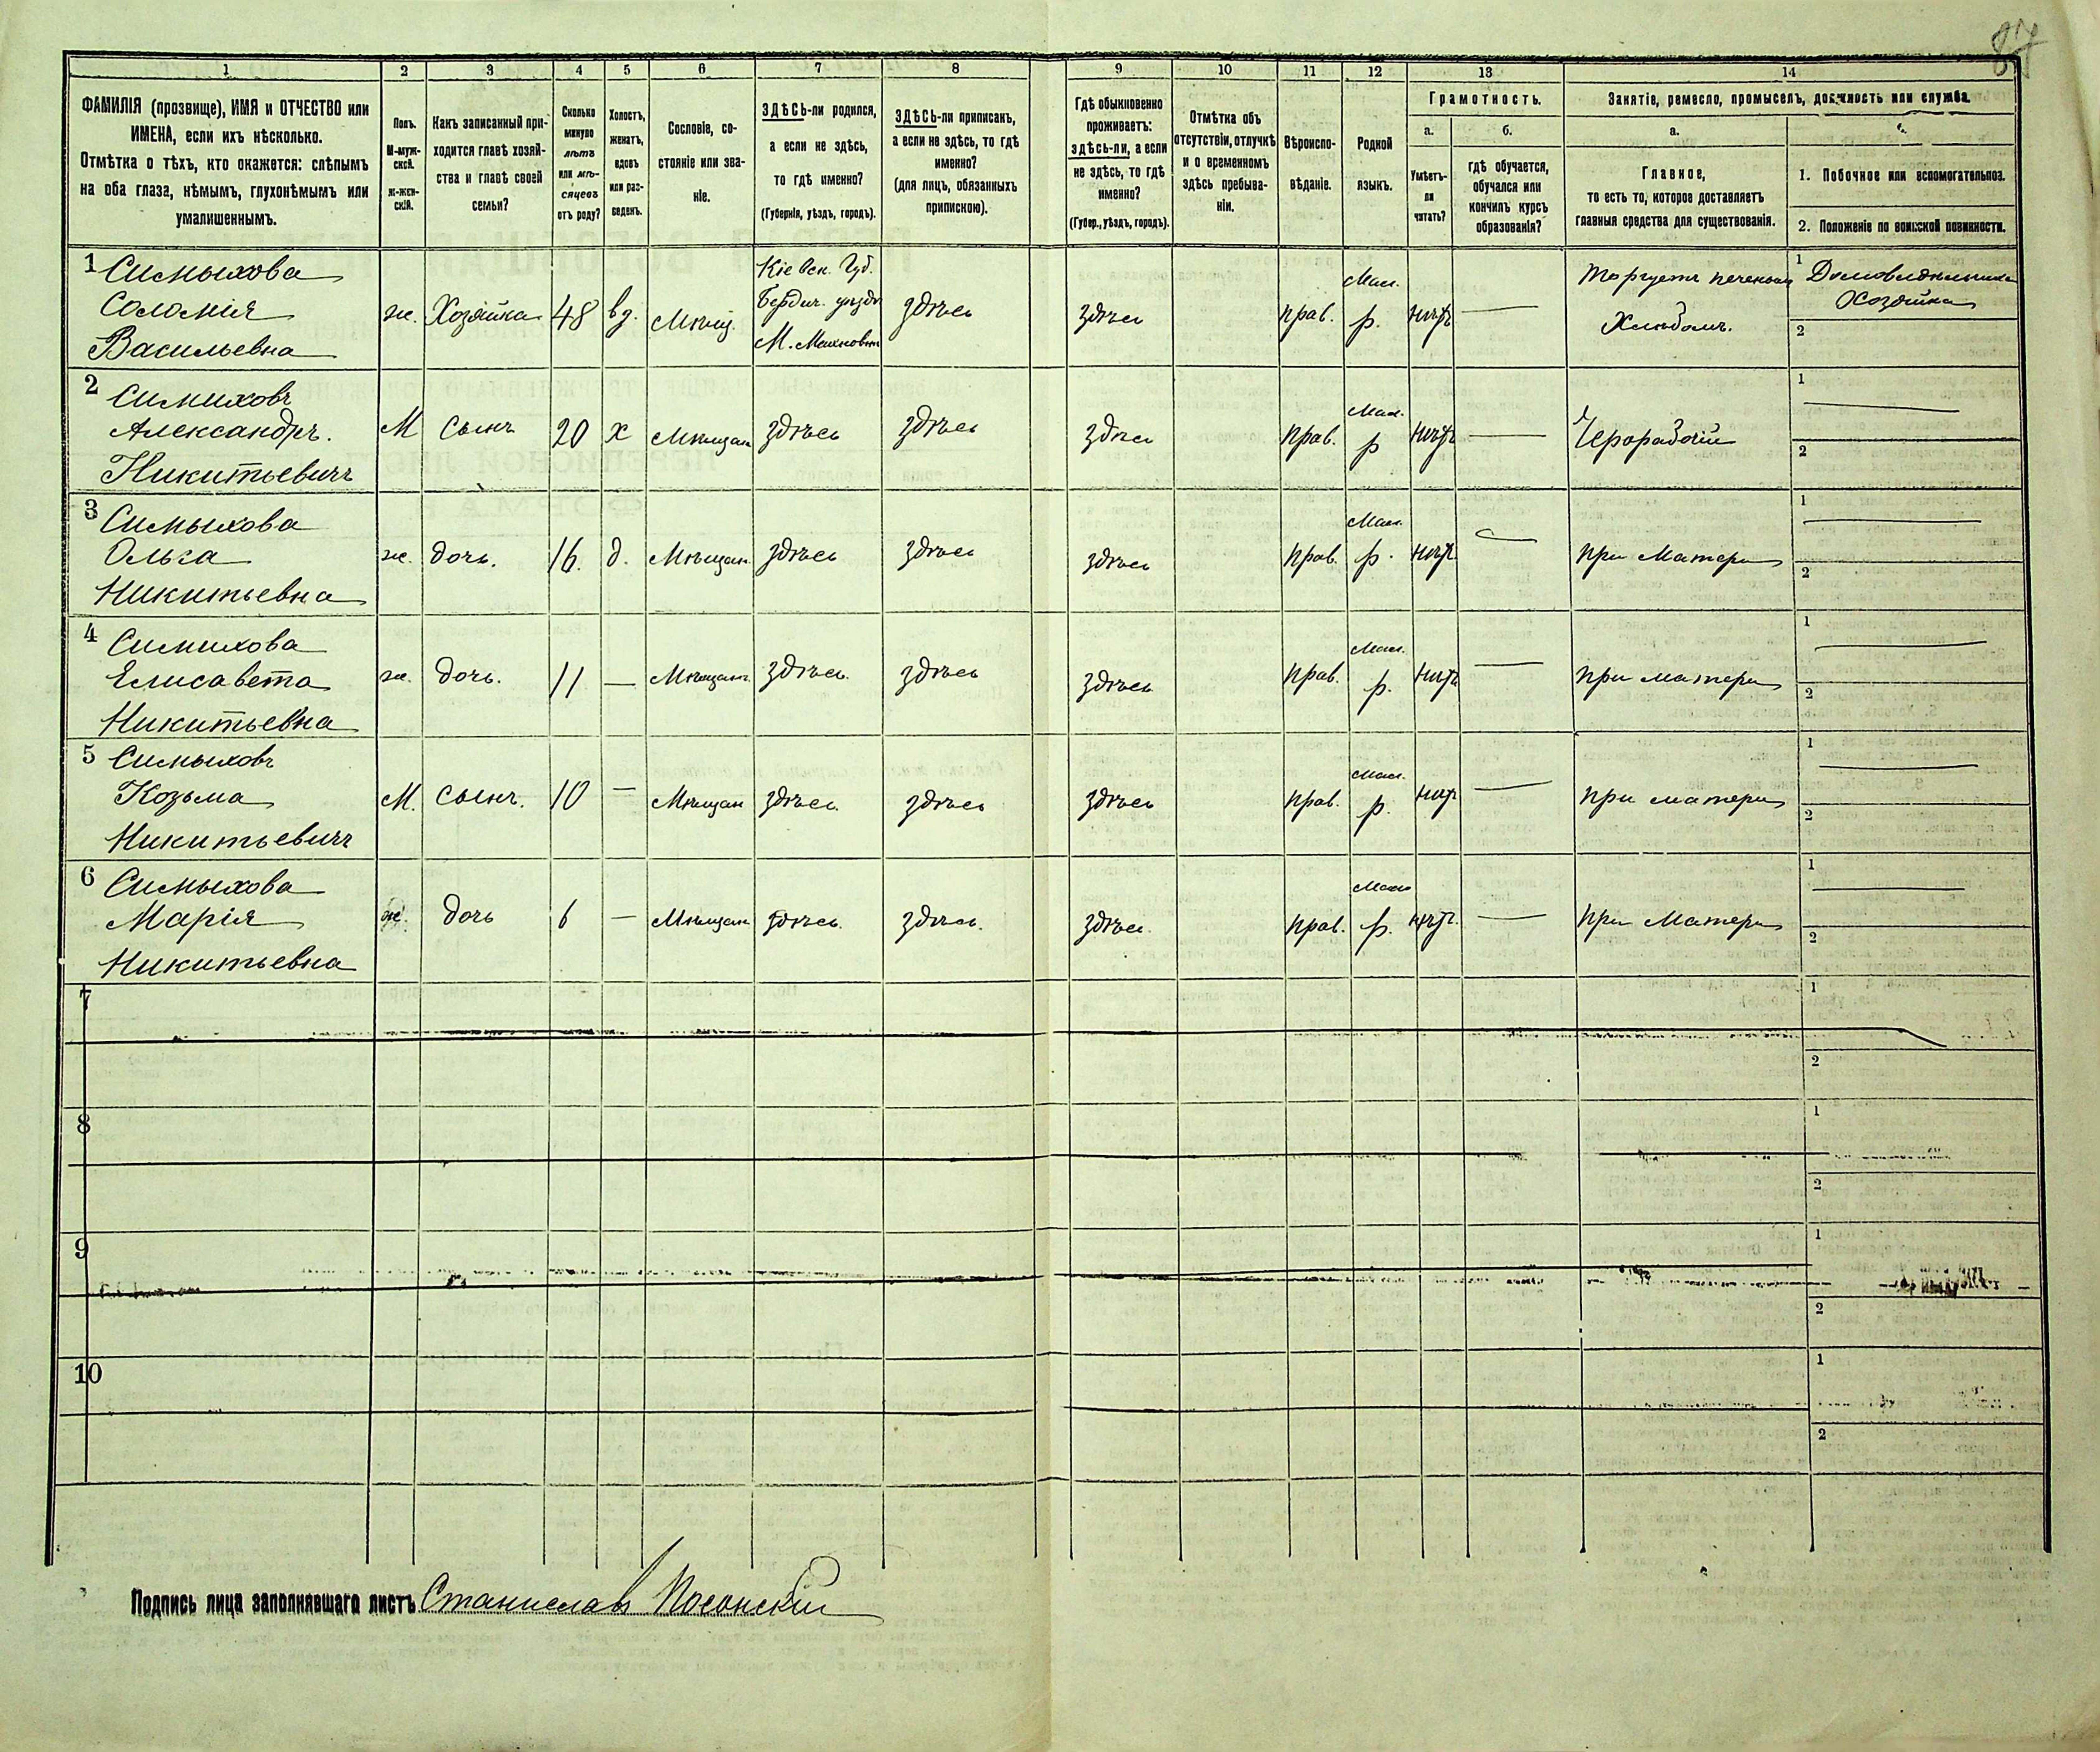 87
1 2 3 4 5 6 7 8 9 10 11 12 13 14
ФАМИЛІЯ (прозвище), ИМЯ и ОТЧЕСТВО или
ИМЕНА, если ихъ нѣсколько.
Отмѣтка о тѣхъ, кто окажется: слѣпымъ
на оба глаза, нѣмымъ, глухонѣмымъ или
умалишеннымъ.
Полъ.
М-муж-
ской.
ж-жен-
скій.
Какъ записанный при-
ходится главѣ хозяй-
ства и главѣ своей
семьи?
Сколько
минуло
лѣтъ
или мѣ-
сяцевъ
отъ роду?
Холостъ,
женатъ,
вдовъ
или раз-
веденъ.
Сословіе, со-
стояніе или зва-
ніе.
ЗДѢСЬ-ли родился,
а если не здѣсь,
то гдѣ именно?
(Губернія, уѣздъ, городъ).
ЗДѢСЬ-ли приписан,
а если не здѣсь, то гдѣ
именно?
(для лицъ, обязанныхъ
припискою).
Гдѣ обыкновенно
проживаетъ:
здѣсь-ли, а если
не здѣсь, то гдѣ
именно?
(Губер., уѣздъ, городъ).
Отмѣтка объ
отсутствіи, отлучкѣ
и о временномъ
здѣсь пребыва-
ніи.
Вѣроиспо-
вѣданіе.
Родной
языкъ.
Грамотность.
а.
Умѣетъ-
ли
читать?
б.
гдѣ обучается,
обучался или
кончилъ курсъ
образованія?
Занятіе, ремесло, промыселъ, должность или служба.
а.
Главное,
то есть то, которое доставляетъ
главныя средства для существованія.
б.
1. Побочное или вспомогательное.
2. Положеніе по воинской повинности.
1 Симыхова
Соломія
Васильевна
ж. Хозяйка 48 вд. Мѣщ.
Кіевск. Губ.
Бердич. уѣздъ
М. Махновка
здѣсь здѣсь прав.
Мал.
р. нѣтъ —
Торгуетъ печеным
Хлѣбомъ.
1 Домовладѣлица
Хозяйка
2
2 Симиховъ
Александръ.
Никитьевичъ
М сынъ 20 х Мѣщан здѣсь здѣсь здѣсь прав.
Мал.
р нѣтъ — Чернорабочій
1 —
2
3 Симыхова
Ольга
Никитьевна
ж. дочь. 16. д. Мѣщан. здѣсь здѣсь здѣсь прав.
Мал.
р. нѣтъ — при Матери
1 —
2
4 Симихова
Елисавета
Никитьевна
ж. дочь. 11 — Мѣщан. здѣсь. здѣсь здѣсь прав.
Мал.
р. нѣтъ — при матери
1 —
2
5 Симыховъ
Козьма
Никитьевичъ
М. сынъ. 10 — Мѣщан здѣсь здѣсь здѣсь прав.
Мал.
р. нѣтъ — при матери
1 —
2
6 Симыхова
Марія
Никитьевна
ж. дочь 6 — Мѣщан здѣсь. здѣсь. здѣсь. прав.
Мал.
р. нѣтъ. — при Матери
1 —
2
7
1
2
8
1
2
9
1
2
10
1
2
Подпись лица заполнявшаго листъ Станислав